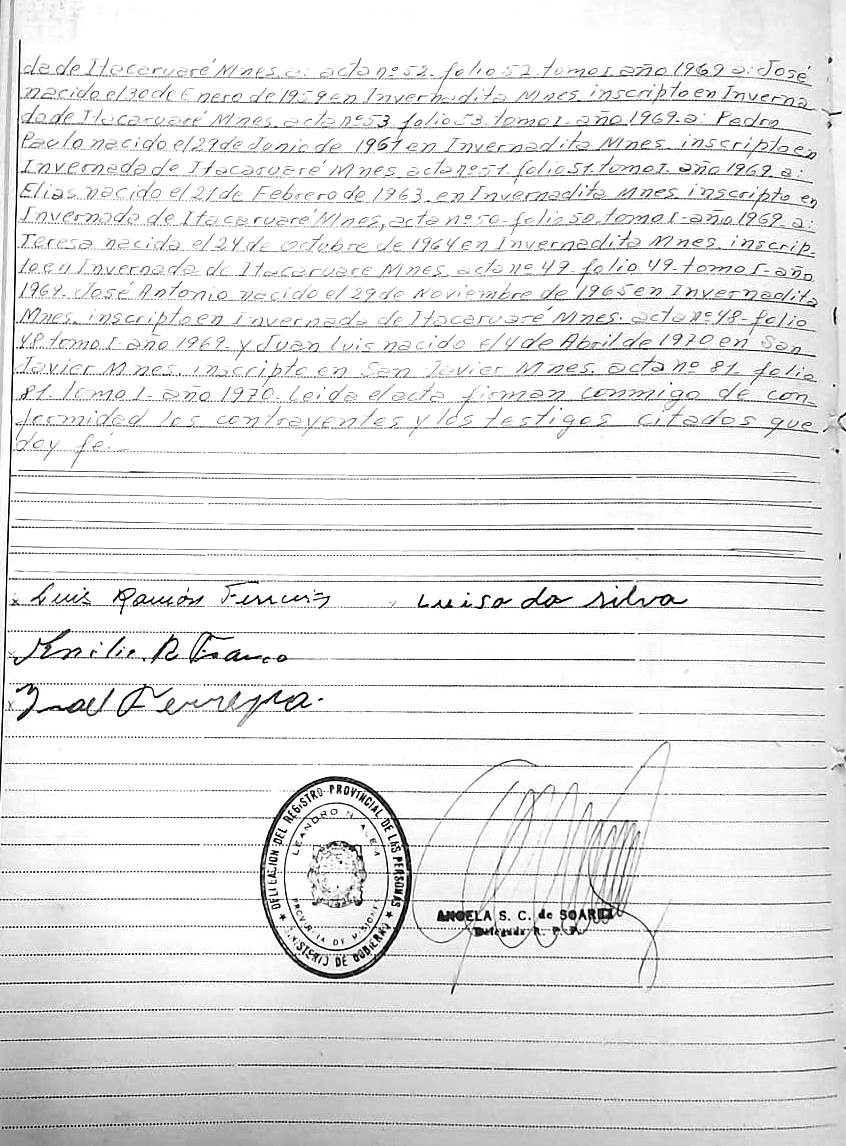 da de Itacaruaré Mnes. a: acta nº 52. folio 52. tomo I. año 1969 a: José
nacido el 30 de Enero de 1959 en Invernadita Mnes. inscripto en Inverna
da de Itacaruaré Mnes. acta nº 53. folio 53. tomo I. año 1969. a: Pedro
Paulo nacido el 29 de Junio de 1961 en Invernadita Mnes. inscripto en
Invernada de Itacaruaré Mnes. acta nº 51. folio 51. tomo I. año 1969. a:
Elias nacido el 21 de Febrero de 1963. en Invernadita Mnes. inscripto en
Invernada de Itacaruaré Mnes, acta nº 50- folio 50. tomo I- año 1969. a:
Teresa nacida el 24 de Octubre de 1964 en Invernadita Mnes. inscrip-
to en Invernada de Itacaruare Mnes. acta nº 49- folio 49- tomo I- año
1969. José Antonio nacido el 29 de Noviembre de 1965 en Invernadita
Mnes. inscripto en Invernada de Itacaruaré Mnes. acta nº 48- folio
48 tomo I- año 1969. y Juan Luis nacido el 4 de Abril de 1970 en San
Javier Mnes. inscripto en San Javier Mnes. acta nº 81. folio
81- tomo I- año 1970. Leida el acta firman conmigo de con_
formidad los contrayentes y los testigos citados que
doy fé.-
x Luis Ramón x Luisa da silva
x Emilio R Franco
x Ferreyra.
DELEGACION DEL REGISTRO PROVINCIAL DE LAS PERSONAS
LEANDRO N. ALEM
PROVINCIA DE MISIONES
★ MINISTERIO DE GOBIERNO ★
ANGELA S. C. de SOAREZ
Delegada R. P. P.